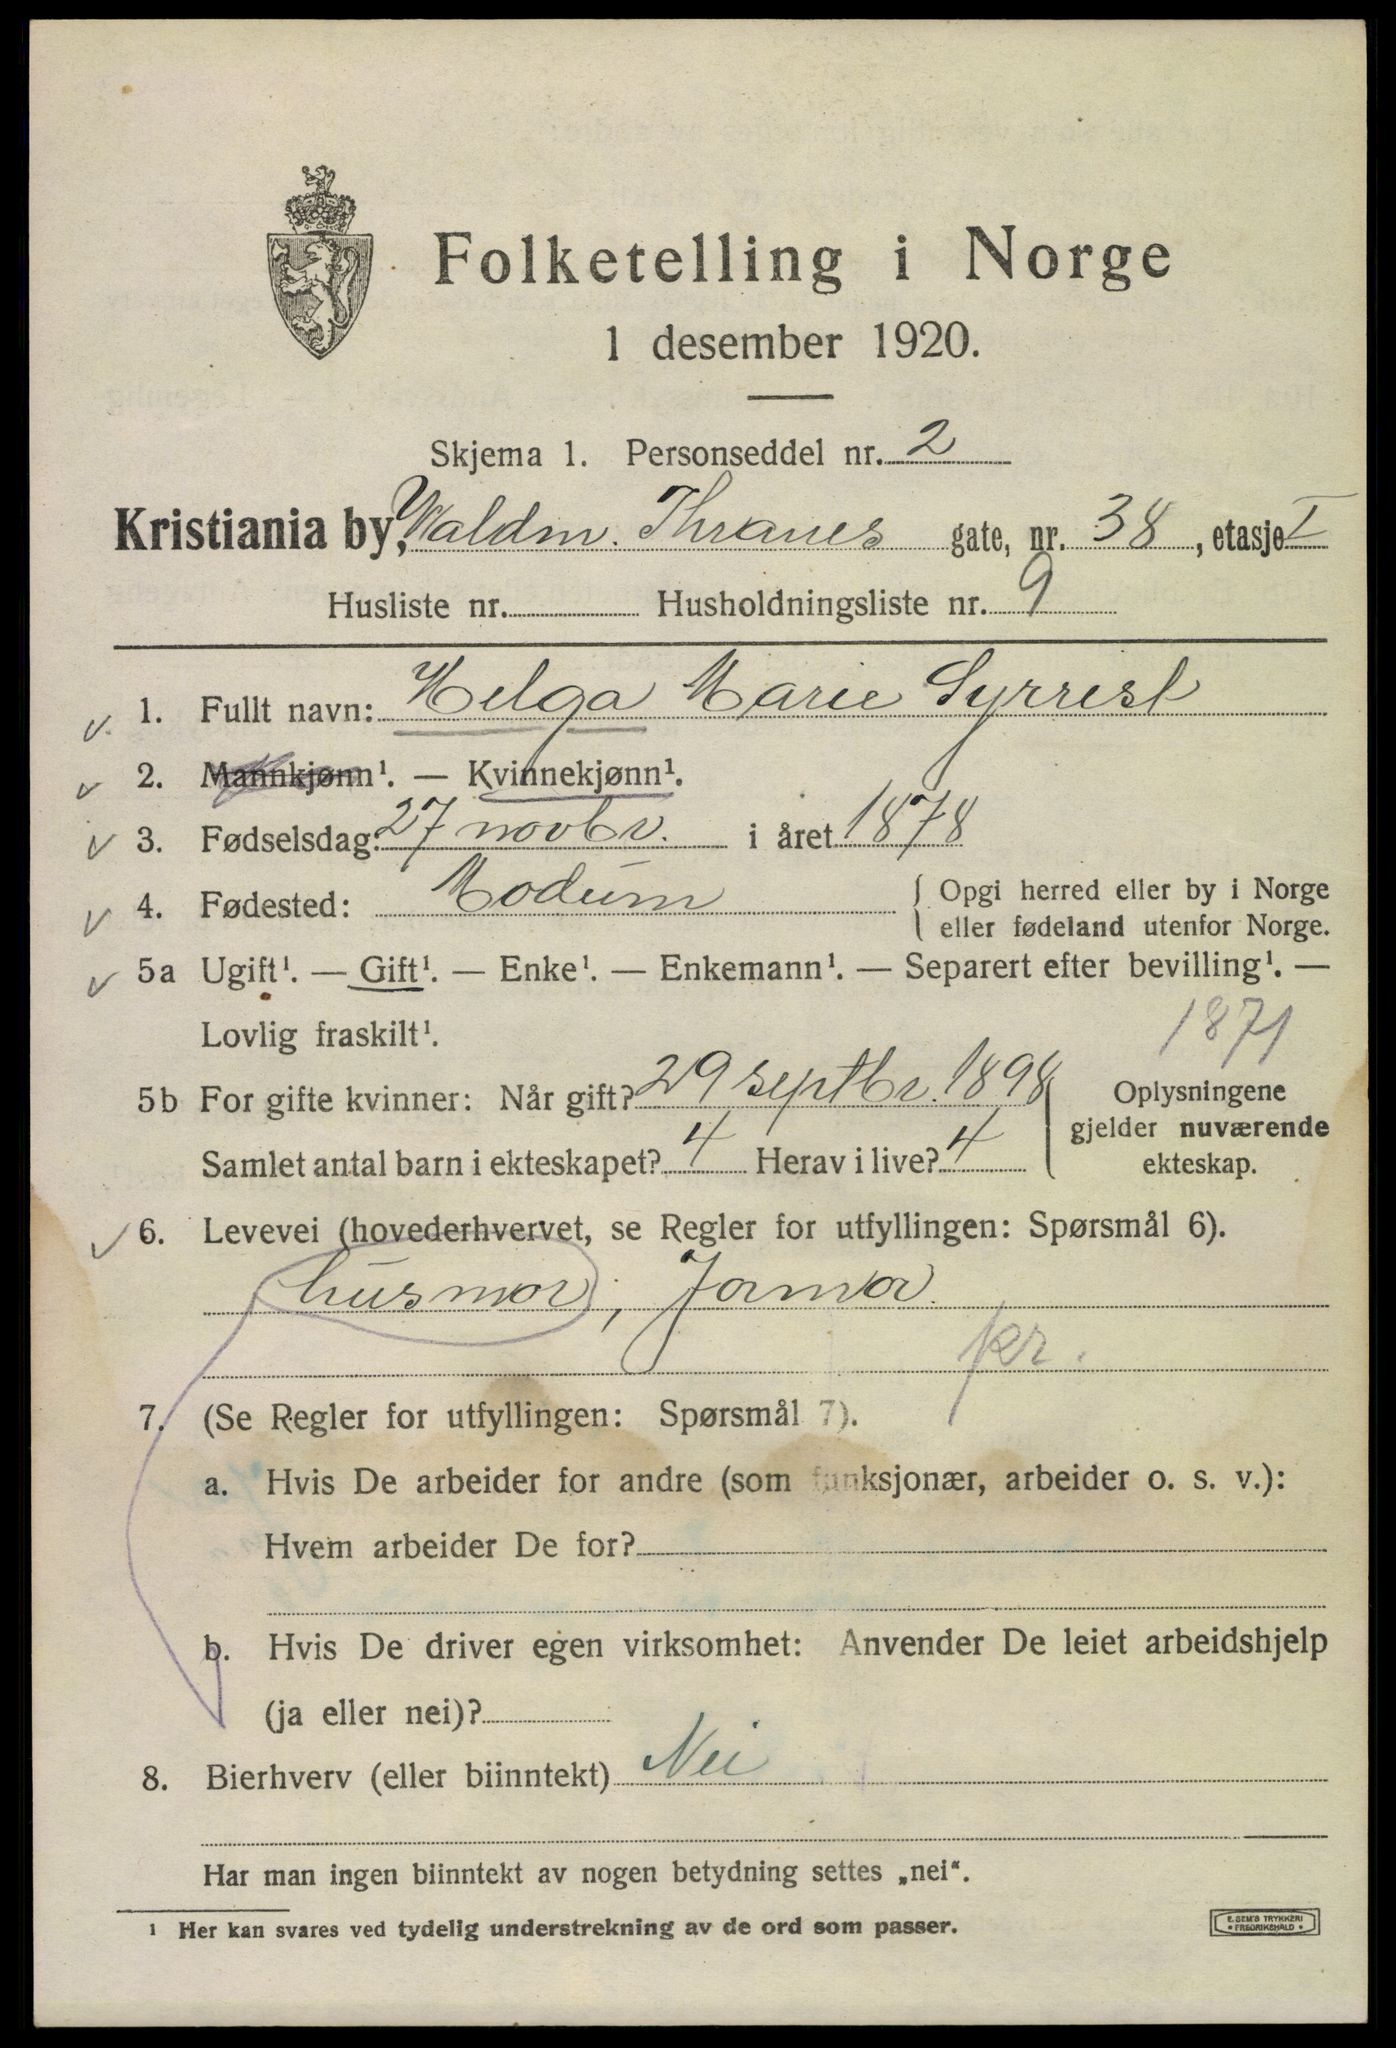 Folketelling i Norge
1 desember 1920.
Skjema 1. Personseddel nr. 2
Kristiania by, Waldm. Thranes gate, nr. 38, etasje I
Husliste nr. Husholdningsliste nr. 9
1. Fullt navn: Helga Marie Syrrist
2. Mannkjønn¹. — Kvinnekjønn¹.
3. Fødselsdag: 27 novbr. i året 1878
4. Fødested: Modum { Opgi herred eller by i Norge
eller fødeland utenfor Norge.
5a Ugift¹. — Gift¹. — Enke¹. — Enkemann¹. — Separert efter bevilling¹. —
Lovlig fraskilt¹. 1871
5b For gifte kvinner: Når gift? 29 septbr. 1898
Samlet antal barn i ekteskapet? 4 Herav i live? 4
Oplysningene
gjelder nuværende
ekteskap.
6. Levevei (hovederhvervet, se Regler for utfyllingen: Spørsmål 6).
husmor, Jormor.
pr.
7. (Se Regler for utfyllingen: Spørsmål 7).
a. Hvis De arbeider for andre (som funksjonær, arbeider o. s. v.):
Hvem arbeider De for?
b. Hvis De driver egen virksomhet: Anvender De leiet arbeidshjelp
(ja eller nei)?
8. Bierhverv (eller biinntekt) Nei
Har man ingen biinntekt av nogen betydning settes „nei“.
¹ Her kan svares ved tydelig understrekning av de ord som passer.
E. SEM'S TRYKKERI
• FREDRIKSHALD •